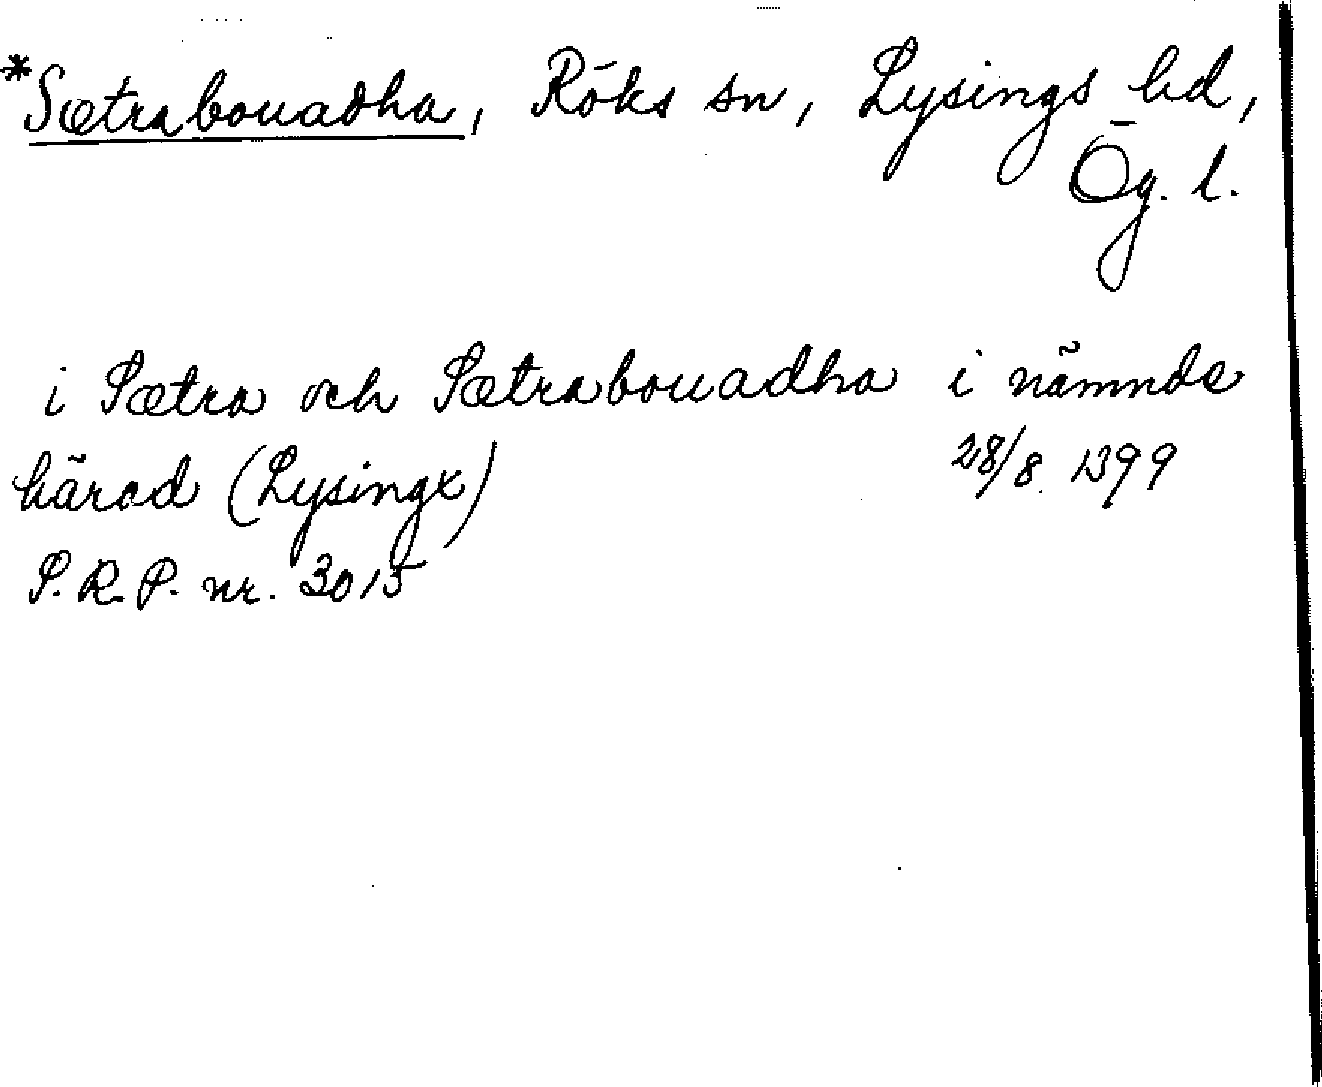 *Sætrabouadha, Röks sn, Lysings hd,
Ög. l.
i Sætra och Sætrabouadha i nämnda
härad (Lysingx) 28/8 1399
S.R.P. nr. 3015